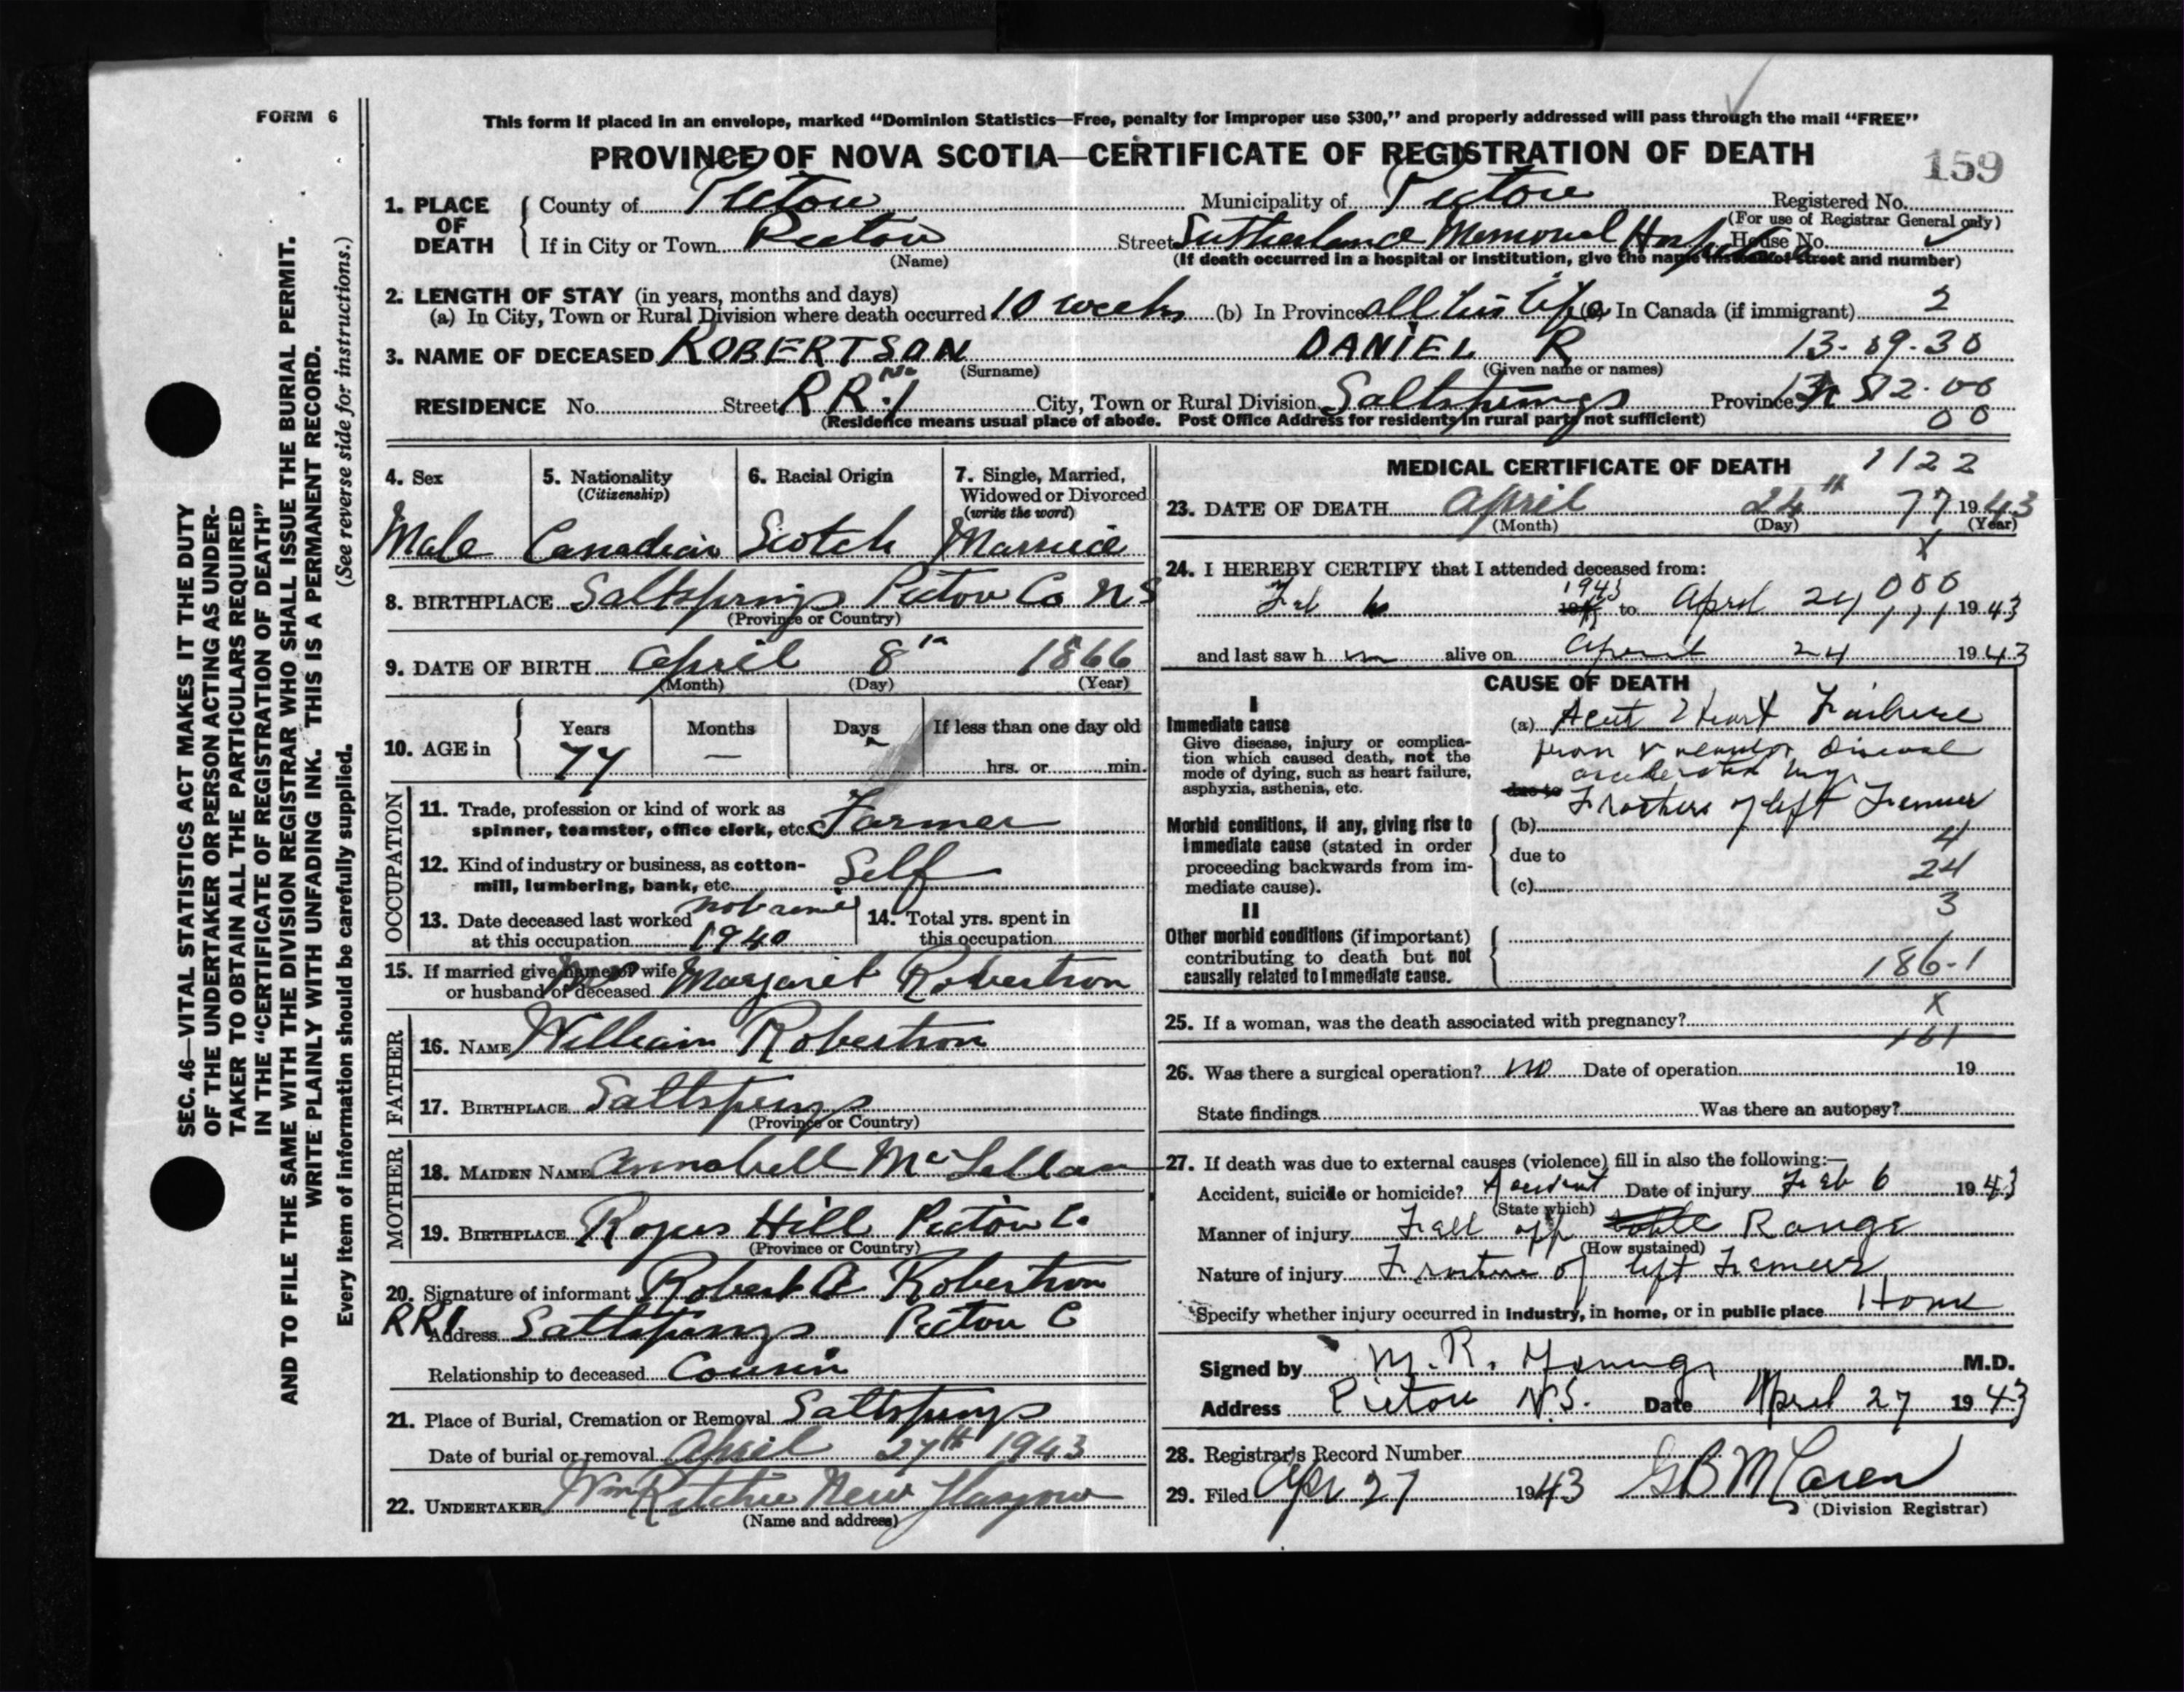 FORM 6
This form if placed in an envelope, marked “Dominion Statistics—Free, penalty for improper use $300,” and properly addressed will pass through the mail “FREE”
PROVINCE OF NOVA SCOTIA—CERTIFICATE OF REGISTRATION OF DEATH
159
1. PLACE OF DEATH County of Pictou Municipality of Pictou Registered No.
(For use of Registrar General only)
If in City or Town Pictou Street Sutherland Memorial Hospital House No.
(Name) (If death occurred in a hospital or institution, give the name instead of street and number)
2. LENGTH OF STAY (in years, months and days)
(a) In City, Town or Rural Division where death occurred 10 weeks (b) In Province all his life (c) In Canada (if immigrant) 2
3. NAME OF DECEASED ROBERTSON DANIEL R 13-09-30
(Surname) (Given name or names)
RESIDENCE No. Street RR No 1 City, Town or Rural Division Saltsprings Province 12-00
(Residence means usual place of abode. Post Office Address for residents in rural parts not sufficient) 00
4. Sex 5. Nationality (Citizenship) 6. Racial Origin 7. Single, Married, Widowed or Divorced (write the word)
Male Canadian Scotch Married
8. BIRTHPLACE Saltsprings Pictou Co N S
(Province or Country)
9. DATE OF BIRTH April 8th 1866
(Month) (Day) (Year)
10. AGE in Years Months Days If less than one day old
77 — hrs. or min.
OCCUPATION
11. Trade, profession or kind of work as spinner, teamster, office clerk, etc. Farmer
12. Kind of industry or business, as cotton-mill, lumbering, bank, etc. Self
13. Date deceased last worked at this occupation 1940
14. Total yrs. spent in this occupation
15. If married give name of wife or husband of deceased Margaret Robertson
FATHER
16. NAME William Robertson
17. BIRTHPLACE Saltsprings
(Province or Country)
MOTHER
18. MAIDEN NAME Annabell McLellan
19. BIRTHPLACE Rogers Hill Pictou Co
(Province or Country)
20. Signature of informant Robert A Robertson
RR1 Address Saltsprings Pictou C
Relationship to deceased Cousin
21. Place of Burial, Cremation or Removal Saltsprings
Date of burial or removal April 27th 1943
22. UNDERTAKER Wm Ritchie New Glasgow
(Name and address)
MEDICAL CERTIFICATE OF DEATH 1122
23. DATE OF DEATH April 24th 77 1943
(Month) (Day) (Year)
x
24. I HEREBY CERTIFY that I attended deceased from:
Feb 6 1943 to April 24 1943
000
and last saw him alive on April 24 1943
CAUSE OF DEATH
I
Immediate cause
Give disease, injury or complication which caused death, not the mode of dying, such as heart failure, asphyxia, asthenia, etc.
(a) Acut Heart Failure
from valvular disease
accelerated by
due to Fracture of left Femur
Morbid conditions, if any, giving rise to immediate cause (stated in order proceeding backwards from immediate cause).
(b)
4
due to
24
(c)
3
II
Other morbid conditions (if important) contributing to death but not causally related to immediate cause.
1
186-1
x
25. If a woman, was the death associated with pregnancy?
161
26. Was there a surgical operation? no Date of operation 19
State findings Was there an autopsy?
27. If death was due to external causes (violence) fill in also the following:—
Accident, suicide or homicide? Accident Date of injury Feb 6 1943
(State which)
Manner of injury Fall off Range
(How sustained)
Nature of injury Fracture of left Femur
Specify whether injury occurred in industry, in home, or in public place Home
Signed by M. R. Young M.D.
Address Pictou N.S. Date April 27 1943
28. Registrar's Record Number
29. Filed Apr 27 1943 G B McLaren
(Division Registrar)
SEC. 46—VITAL STATISTICS ACT MAKES IT THE DUTY
OF THE UNDERTAKER OR PERSON ACTING AS UNDER-
TAKER TO OBTAIN ALL THE PARTICULARS REQUIRED
IN THE “CERTIFICATE OF REGISTRATION OF DEATH”
AND TO FILE THE SAME WITH THE DIVISION REGISTRAR WHO SHALL ISSUE THE BURIAL PERMIT.
WRITE PLAINLY WITH UNFADING INK. THIS IS A PERMANENT RECORD.
Every item of information should be carefully supplied. (See reverse side for instructions.)